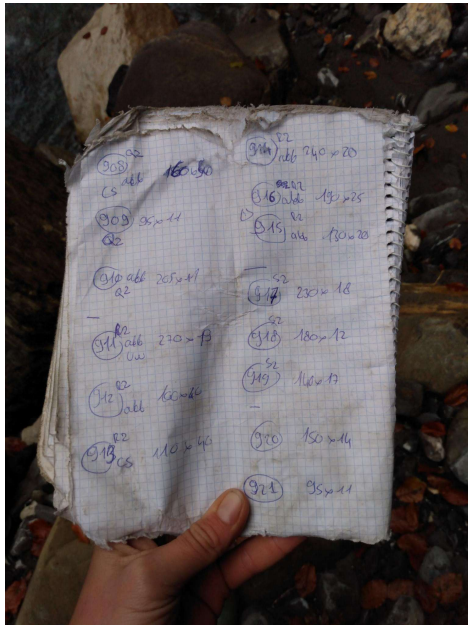 908 Q2
CS abb 160x90
909 95x11
Q2
910 abb 205x11
Q2
—
911 R2 abb 270x13
912 R2 abb 100x60
913 R2 CS 110x40
914 R2 abb 240x20
916 abb 190x25
915 R2 abb 120x20
—
917 S2 230x18
918 S2 180x12
919 S2 140x17
—
920 150x14
921 95x11